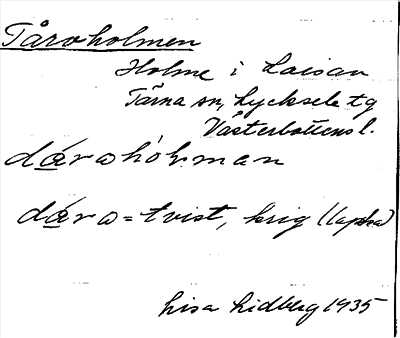 Tårvholmen
Holme i Laisan
Tärna sn, Lycksele tg
Västerbottens l.
dárahól·man
dára = tvist, krig (lapska)
Lisa Lidberg 1935